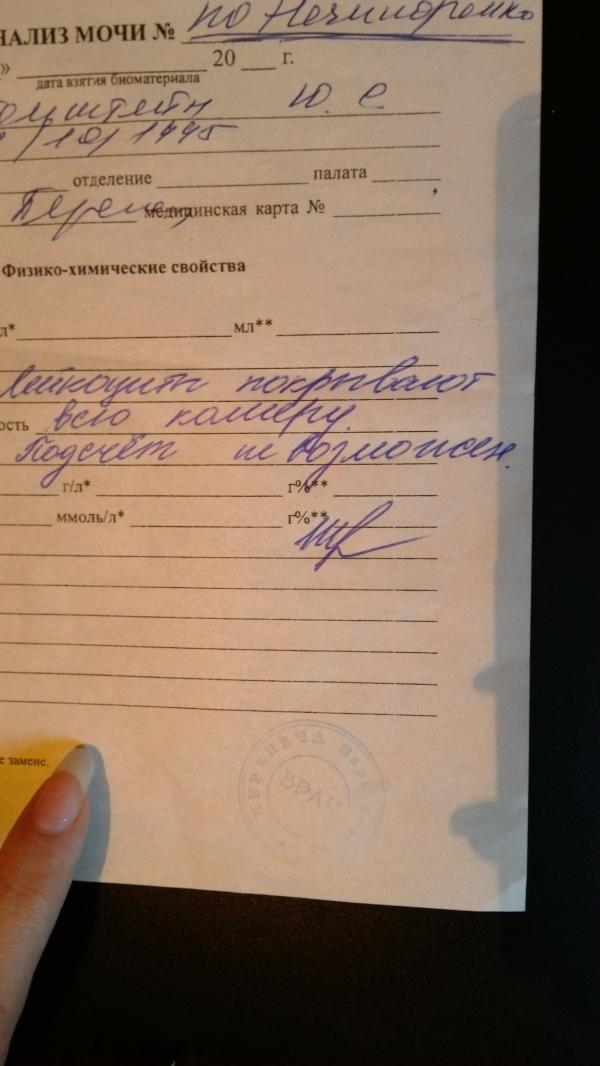 НАЛИЗ МОЧИ № по Нечипоренко
» 20 г.
дата взятия биоматериала
Ю. С.
/10/1995
отделение палата
медицинская карта №
Физико-химические свойства
л* мл**
Лейкоциты покрывают
ость всю камеру.
Подсчёт не возможен.
г/л* г%**
ммоль/л* г%**
е замене.
ПЕРЕПЕЧА
ВРАЧ